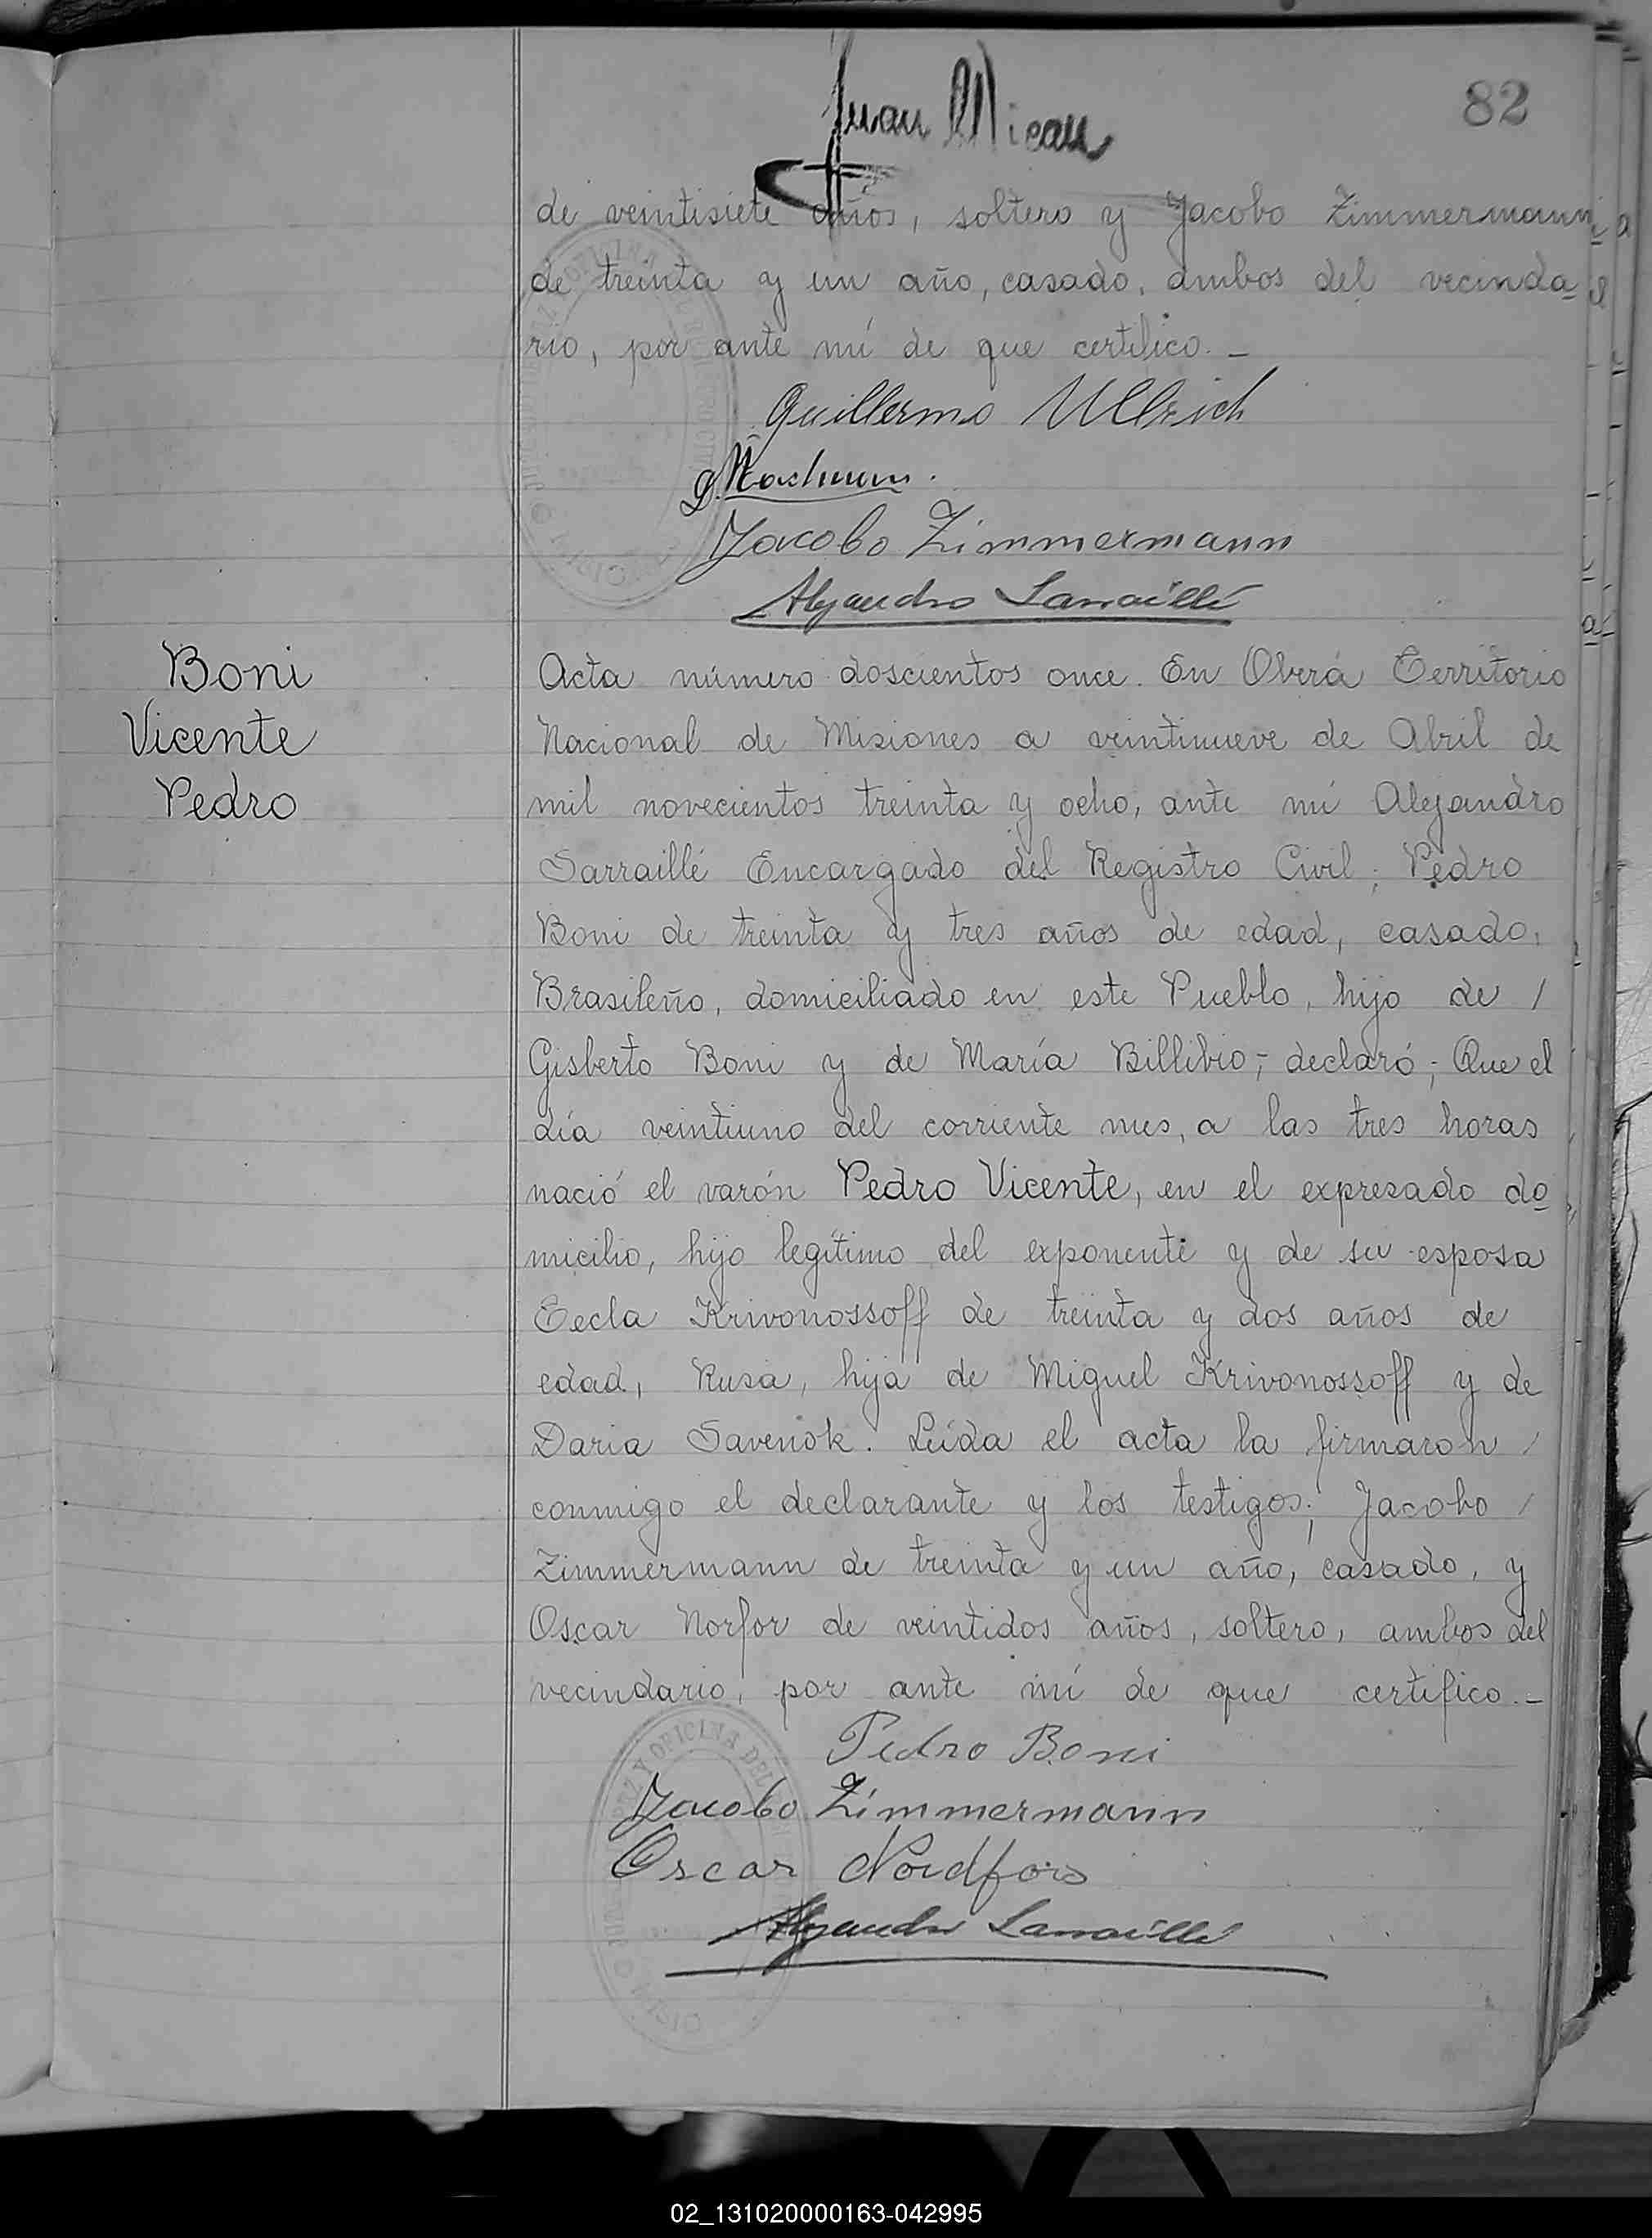 82
Juan Micau
de veintisiete años, soltero y Jacobo Zimmermann
de treinta y un año, casado, ambos del vecinda
rio, por ante mí de que certifico.-
Guillermo Ullrich
Jacobo Zimmermann
Alejandro Sarraillé
Boni
Vicente
Pedro
Acta número doscientos once. En Oberá Territorio
Nacional de Misiones a veintinueve de Abril de
mil novecientos treinta y ocho, ante mí Alejandro
Sarraillé Encargado del Registro Civil; Pedro
Boni de treinta y tres años de edad, casado,
Brasileño, domiciliado en este Pueblo, hijo de /
Gisberto Boni y de María Billibio;- declaró;- Que el
día veintiuno del corriente mes, a las tres horas
nació el varón Pedro Vicente, en el expresado do
micilio, hijo legítimo del exponente y de su esposa
Tecla Krivonossoff de treinta y dos años de
edad, Rusa, hija de Miguel Krivonossoff y de
Daria Savenok. Leída el acta la firmaron /
conmigo el declarante y los testigos; Jacobo /
Zimmermann de treinta y un año, casado, y
Oscar Norfor de veintidos años, soltero, ambos del
vecindario, por ante mí de que certifico.-
Pedro Boni
Jacobo Zimmermann
Oscar Nordfors
Alejandro Sarraillé
02_131020000163-042995